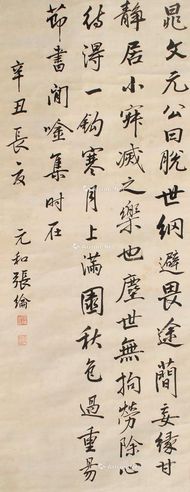 晁文元公曰脫世網避畏途蕳妄緣甘
靜居小寂滅之樂也塵世無拘勞除心
待得一鈎寒月上滿園秋色過重昜
節書閒唫集时在
辛丑長夏
元和張倫